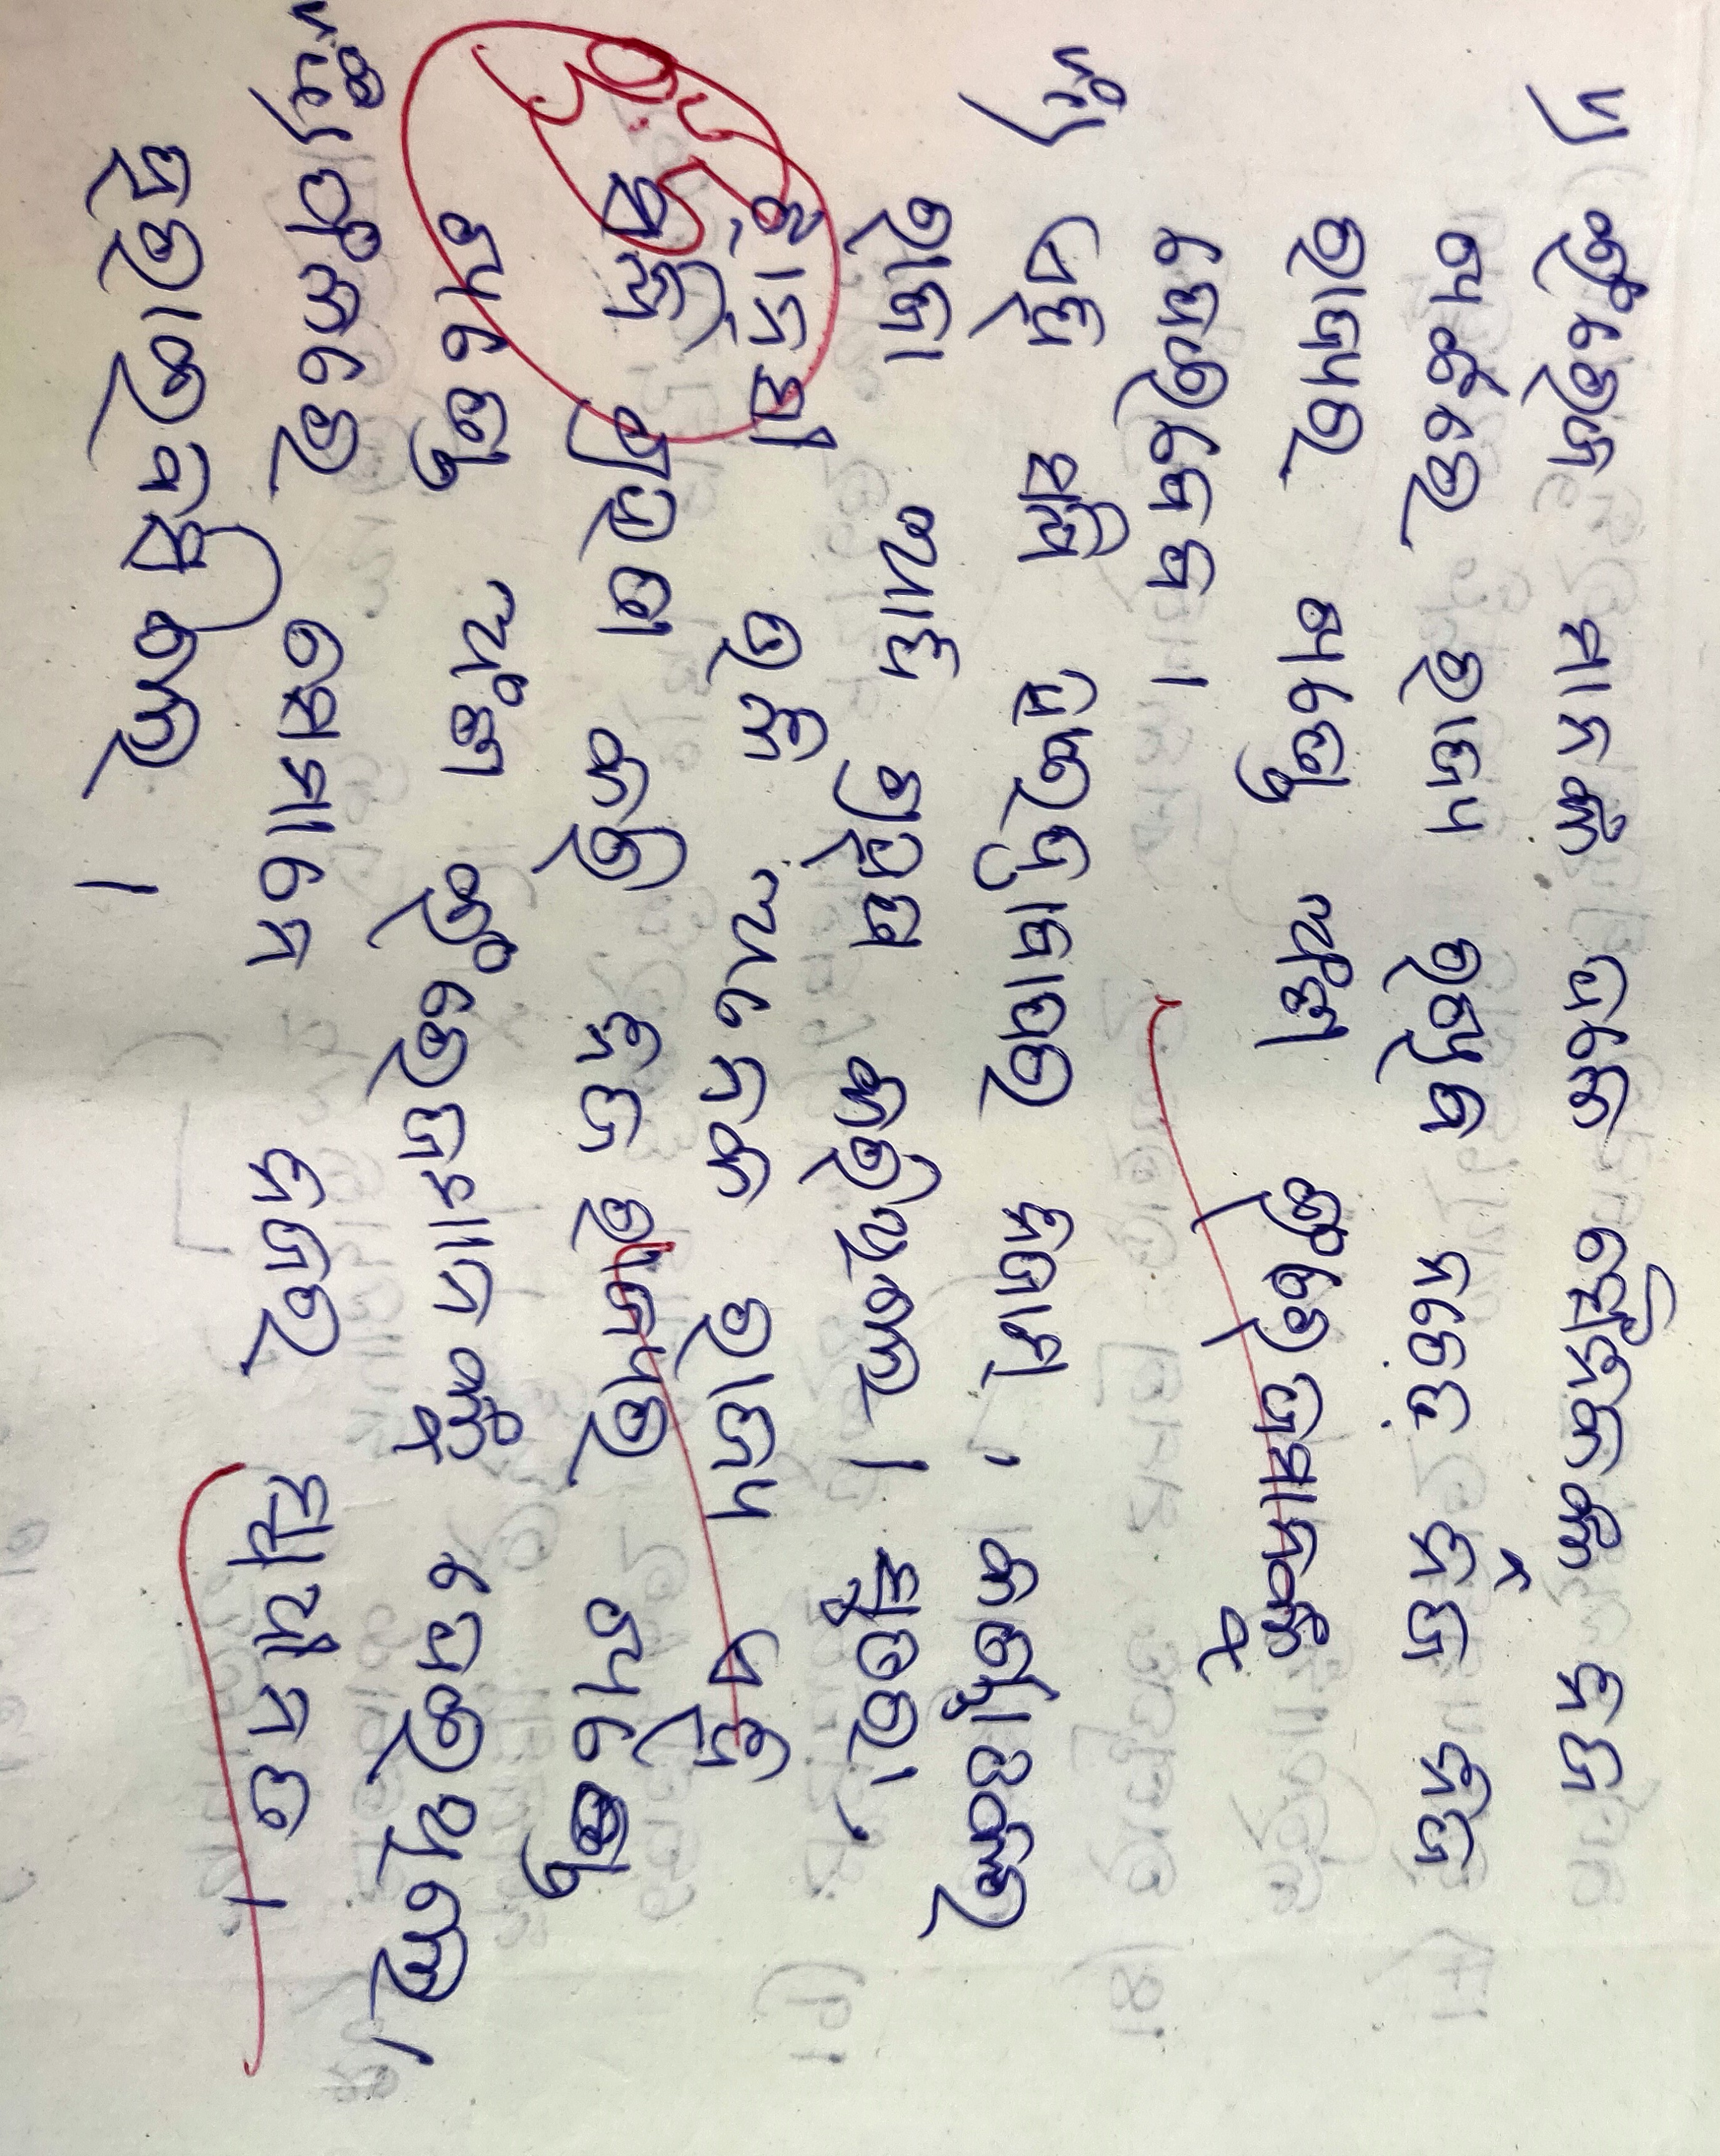 v) ଇଂରେଜ ମାନଙ୍କ ଦଳେ ସୈନିକଙ୍କ ନିଜ
ଖର୍ଚ୍ଚରେ ରାଜ୍ୟ ରଖିବ ନଚେତ୍ ନିଜ ନିଜ
ରାଜ୍ୟର ଖଣ୍ଡେ ଅଂଶ ଇଂରେଜମାନଙ୍କୁ
ଦେଇଦେବ ।
vi) ଏହି ସନ୍ଧି ହାଇଦ୍ରାବାଦର ନିଜାମ୍ , କର୍ଣ୍ଣାଟକର
ରାଜା ଆଦି ଗ୍ରହଣ କରିଥିଲେ । ସୁତରା,
ଝାନ୍‌ସୀ ଭଳି ଅନେକ ରାଜ୍ୟ ଏହି
ସନ୍ଧି ଗ୍ରହଣ କରି ନିଜ ରାଜ୍ୟର ଖଣ୍ଡେ
ଖଣ୍ଡେ ଅଂଶ ଇଂରେଜମାନଙ୍କୁ ଦେଇଥିଲେ ।
vii) ଫଳରେ ସେମାନେ ନିଜର ସ୍ୱାଧୀନତା
ହରାଇବସିଲେ ।